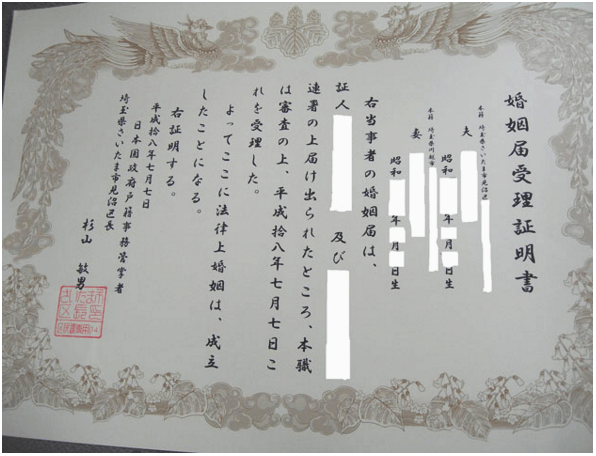 婚姻届受理証明書
本籍 埼玉県さいたま市見沼区
夫
昭和 年 月 日生
本籍 埼玉県川越市
妻
昭和 年 月 日生
右当事者の婚姻届は、
証人 及び
連署の上届け出られたところ、本職
は審査の上、平成拾八年七月七日こ
れを受理した。
よってここに法律上婚姻は、成立
したことになる。
右証明する。
平成拾八年七月七日
日本国政府戸籍事務管掌者
埼玉県さいたま市見沼区長
杉山 敏男